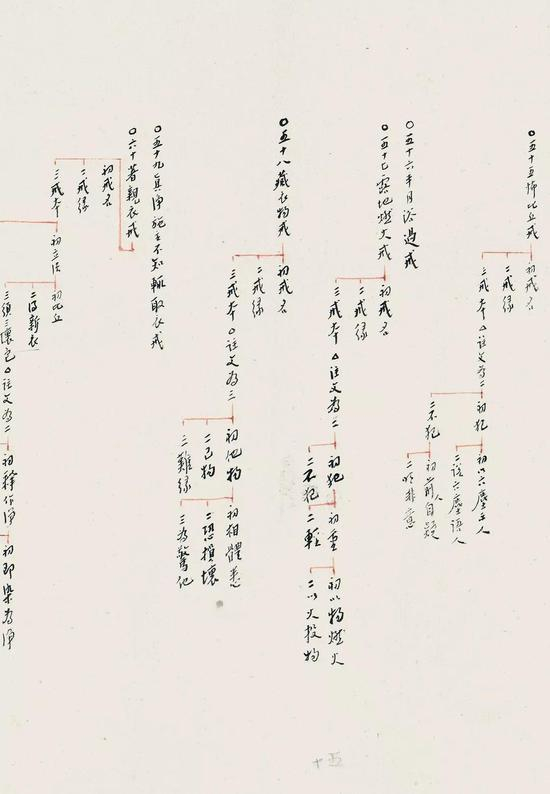 〇五十五怖比丘戒
初戒名
二戒緣
三戒本
△注文為二
初犯
初以六塵示人
二說六塵語人
二不犯
初前人自疑
二
非意
〇五十六半月浴過戒
〇五十七露地燃火戒
初戒名
二戒緣
三戒本
△注文為二
初犯
初重
初以物燃火
二以火投物
二輕
二不犯
〇五十八藏衣物戒
初戒名
二戒緣
三戒本
〇注文為三
初他物
初相體悉
二恐損壞
三為驚他
二己物
三難緣
〇五十九真淨施主不知輒取衣戒
〇六十著新衣戒
初戒名
二戒緣
三戒本
初立法
初比丘
二得新衣
三須三壞色
△注文為二
初釋作淨
初即染為淨
十五